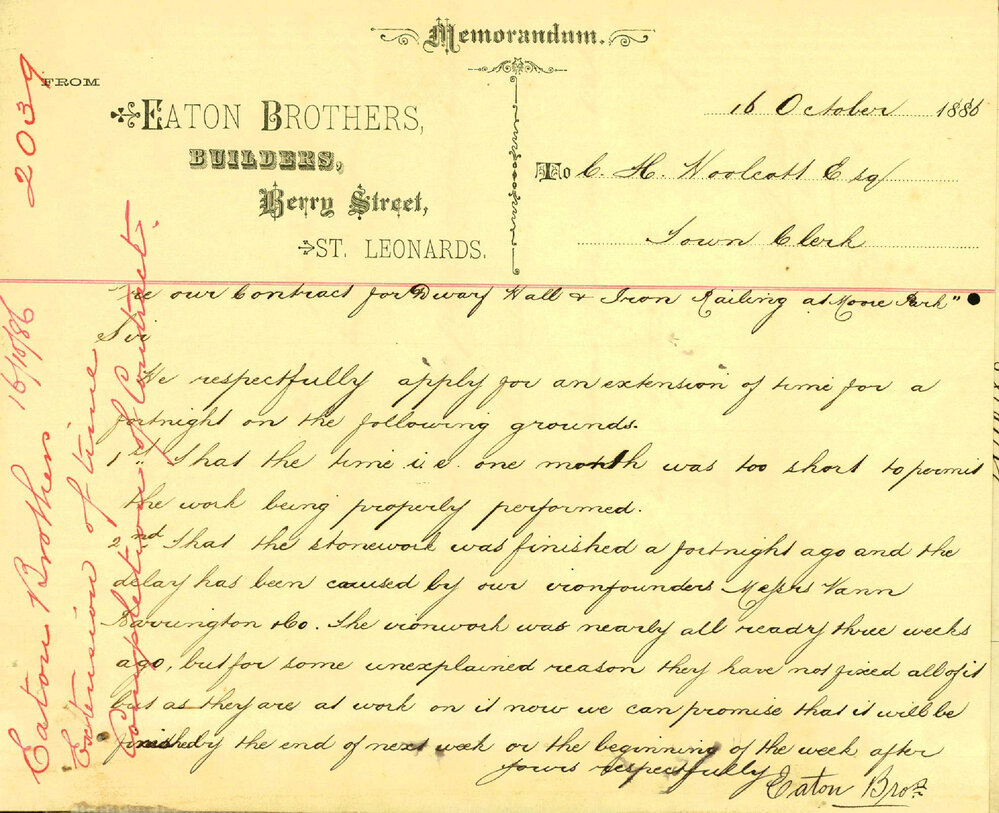 Memorandum.
FROM
EATON BROTHERS,
BUILDERS,
Berry Street,
ST. LEONARDS.
16 October 1886
To C. H. Woolcott Esq
Town Clerk
"re our Contract for Dwarf Wall & Iron Railing at Moore Park"
Sir
We respectfully apply for an extension of time for a
fortnight on the following grounds.
1st That the time i.e. one month was too short to permit
the work being properly performed.
2nd That the stonework was finished a fortnight ago and the
delay has been caused by our ironfounders Messrs Vann
Barrington & Co. The ironwork was nearly all ready three weeks
ago, but for some unexplained reason they have not fixed all of it
but as they are at work on it now we can promise that it will be
finished by the end of next week or the beginning of the week after
Yours respectfully
Eaton Bros
Eaton Brothers 16/10/86 2039
Extension of time
Completion of Contract.